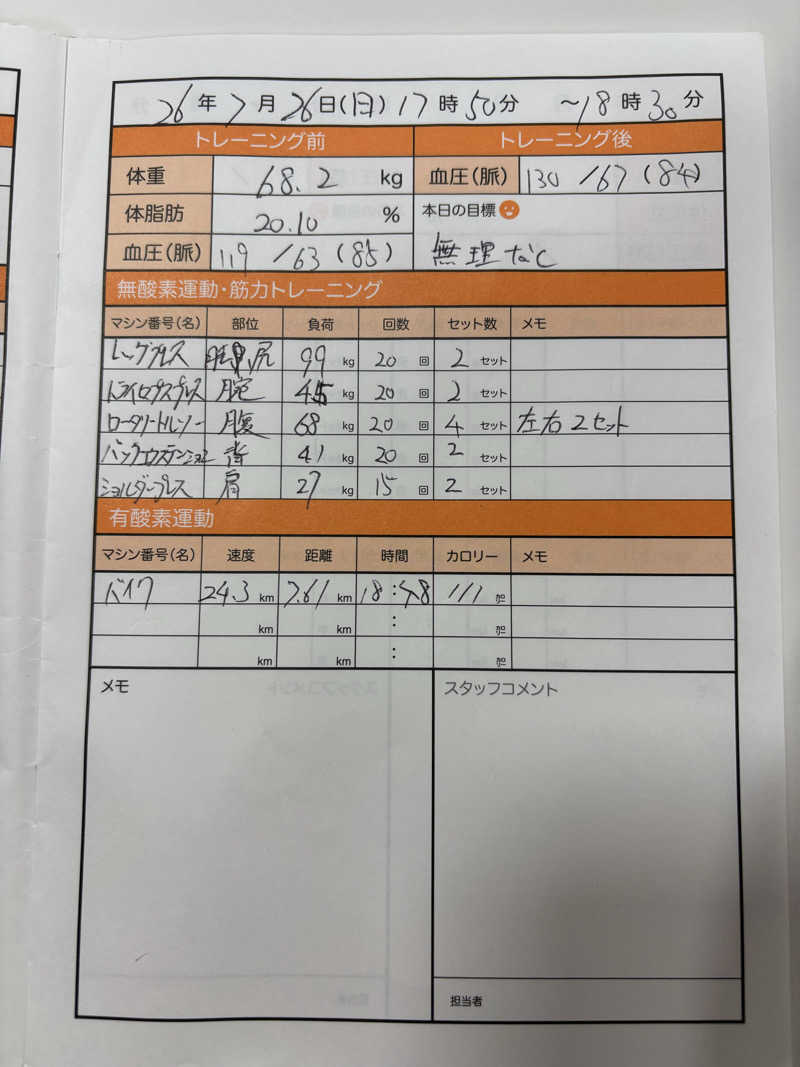 26年7月26日(日)17時50分 ~18時30分
トレーニング前 トレーニング後
体重 68.2 kg 血圧(脈) 130/67(84)
体脂肪 20.10 % 本日の目標
血圧(脈) 119/63(85) 無理なく
無酸素運動・筋力トレーニング
マシン番号(名) 部位 負荷 回数 セット数 メモ
レッグプレス 尻 99 kg 20 回 2 セット
トライセプスプレス 腕 45 kg 20 回 2 セット
ロータリートルソー 腹 68 kg 20 回 4 セット 左右2セット
バックエクステンション 背 41 kg 20 回 2 セット
ショルダープレス 肩 27 kg 15 回 2 セット
有酸素運動
マシン番号(名) 速度 距離 時間 カロリー メモ
バイク 24.3 km 7.61 km 18:48 111 ㌍
km km : ㌍
km km : ㌍
メモ スタッフコメント
担当者